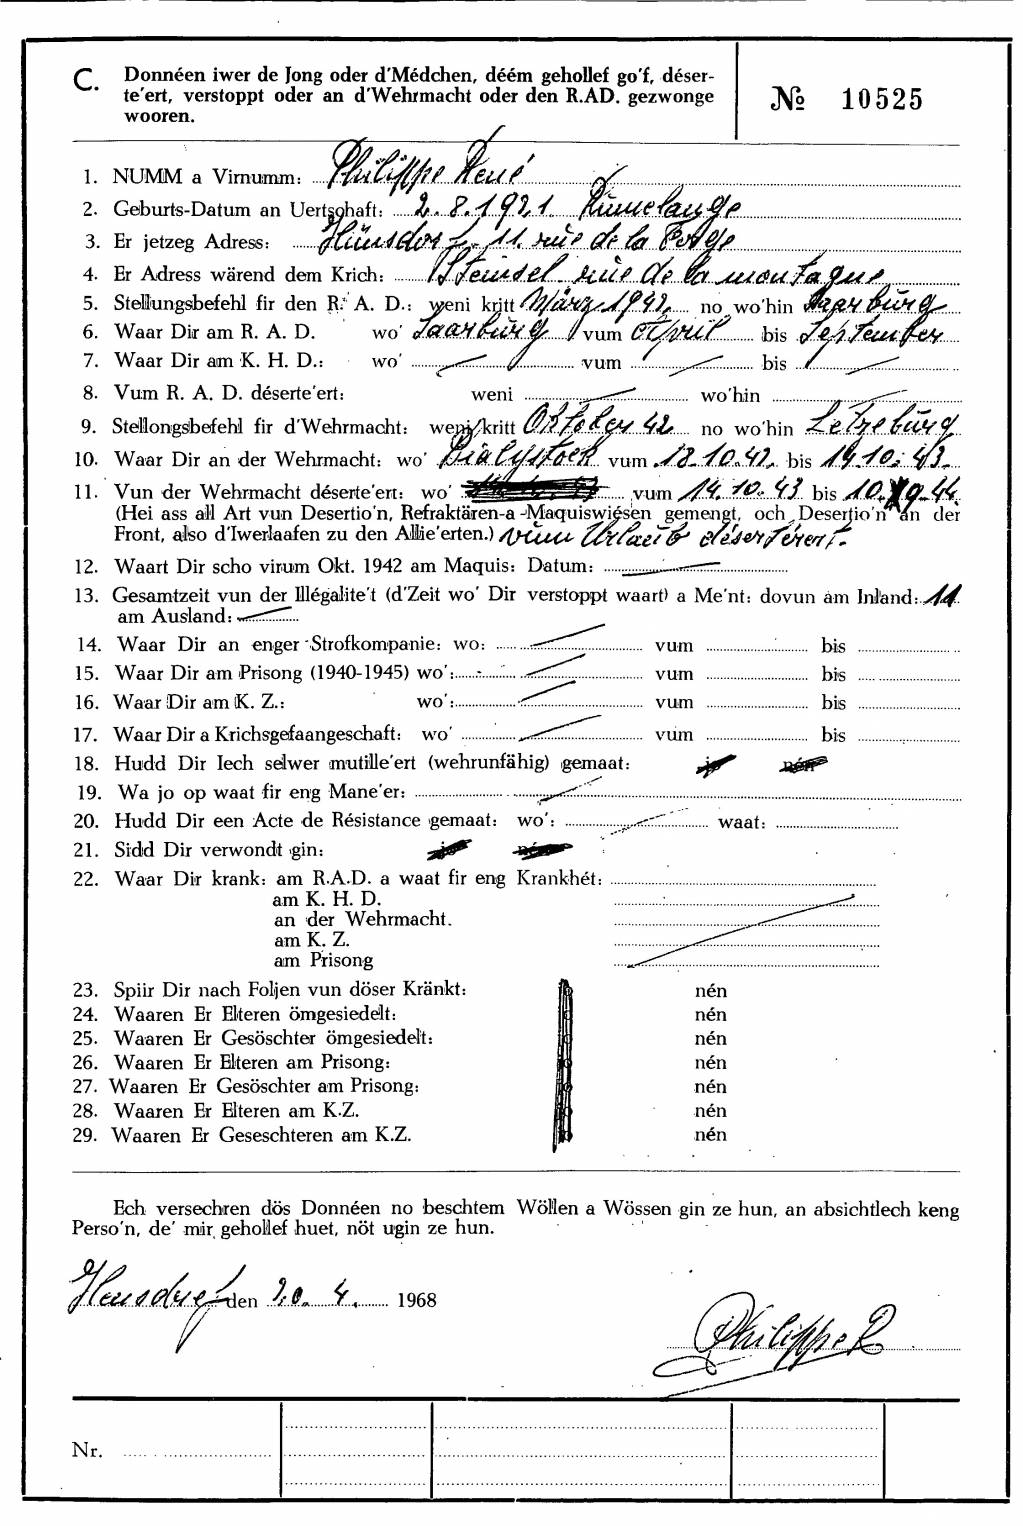 C. Donnéen iwer de Jong oder d'Médchen, déém gehollef go'f, déser-
te'ert, verstoppt oder an d'Wehrmacht oder den R.AD. gezwonge
wooren.
№ 10525
1. NUMM a Virnumm: Philippe René
2. Geburts-Datum an Uertschaft: 2.8.1921 Rumelange
3. Er jetzeg Adress: Hünsdorf, 11. rue de la Forge
4. Er Adress wärend dem Krich: Steinsel rue de la montagne
5. Stellungsbefehl fir den R. A. D.: weni kritt März 1942 no wo'hin Saarburg
6. Waar Dir am R. A. D. wo' Saarbürg vum April bis September
7. Waar Dir am K. H. D.: wo' vum bis
8. Vum R. A. D. déserte'ert: weni wo'hin
9. Stellongsbefehl fir d'Wehrmacht: weni kritt Oktober 42 no wo'hin Letzebürg
10. Waar Dir an der Wehrmacht: wo' Bialystock vum 18.10.42. bis 14.10.43.
11. Vun der Wehrmacht déserte'ert: wo' vum 14.10.43 bis 10.9.44.
(Hei ass all Art vun Desertio'n, Refraktären-a-Maquiswiésen gemengt, och Desertio'n an der
Front, also d'Iwerlaafen zu den Allie'erten.) vum Urlaub désertéiert.
12. Waart Dir scho virum Okt. 1942 am Maquis: Datum:
13. Gesamtzeit vun der Illégalite't (d'Zeit wo' Dir verstoppt waart) a Me'nt: dovun am Inland: 11
am Ausland:
14. Waar Dir an enger Strofkompanie: wo: vum bis
15. Waar Dir am Prisong (1940-1945) wo': vum bis
16. Waar Dir am K. Z.: wo': vum bis
17. Waar Dir a Krichsgefaangeschaft: wo' vum bis
18. Hudd Dir Iech selwer mutille'ert (wehrunfähig) gemaat: jo nén
19. Wa jo op waat fir eng Mane'er:
20. Hudd Dir een Acte de Résistance gemaat: wo': waat:
21. Sidd Dir verwondt gin: jo nén
22. Waar Dir krank: am R.A.D. a waat fir eng Krankhét:
am K. H. D.
an der Wehrmacht.
am K. Z.
am Prisong
23. Spiir Dir nach Foljen vun döser Kränkt: nén
24. Waaren Er Elteren ömgesiedelt: nén
25. Waaren Er Gesöschter ömgesiedelt: nén
26. Waaren Er Elteren am Prisong: nén
27. Waaren Er Gesöschter am Prisong: nén
28. Waaren Er Elteren am K.Z. nén
29. Waaren Er Geseschteren am K.Z. nén
Ech versechren dös Donnéen no beschtem Wöllen a Wössen gin ze hun, an absichtlech keng
Perso'n, de' mir gehollef huet, nöt ugin ze hun.
Hünsdorf den 20. 4. 1968
Philippe R
Nr.